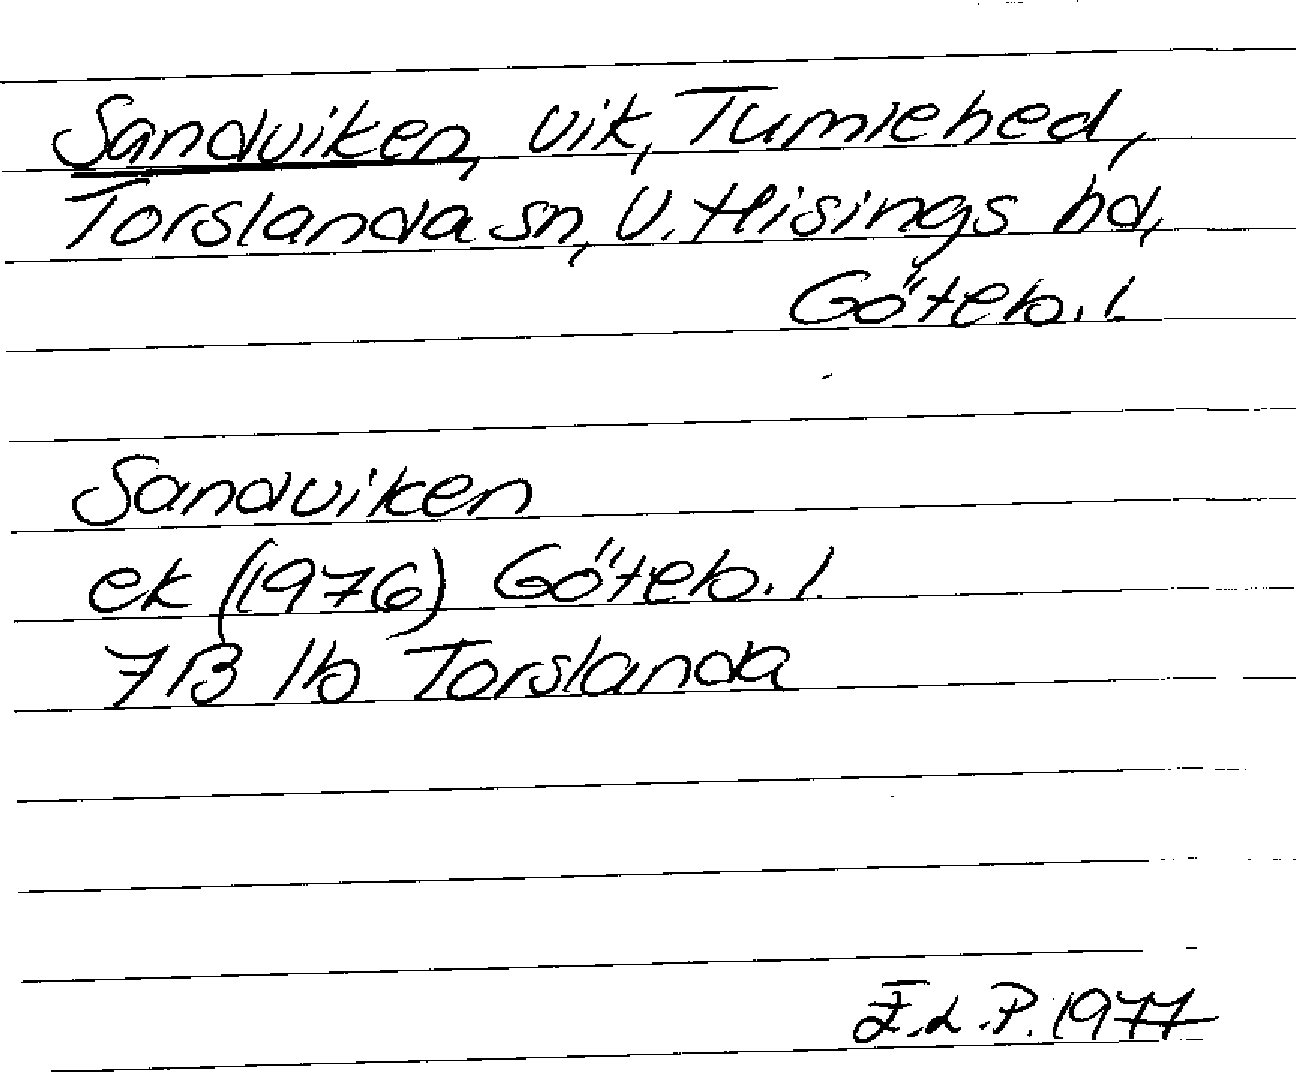 Sandviken, vik, Tumlehed,
Torslanda sn, V. Hisings hd,
Göteb. l.
Sandviken
ek (1976) Göteb. l.
7B 1b Torslanda
F.L.P. 1977